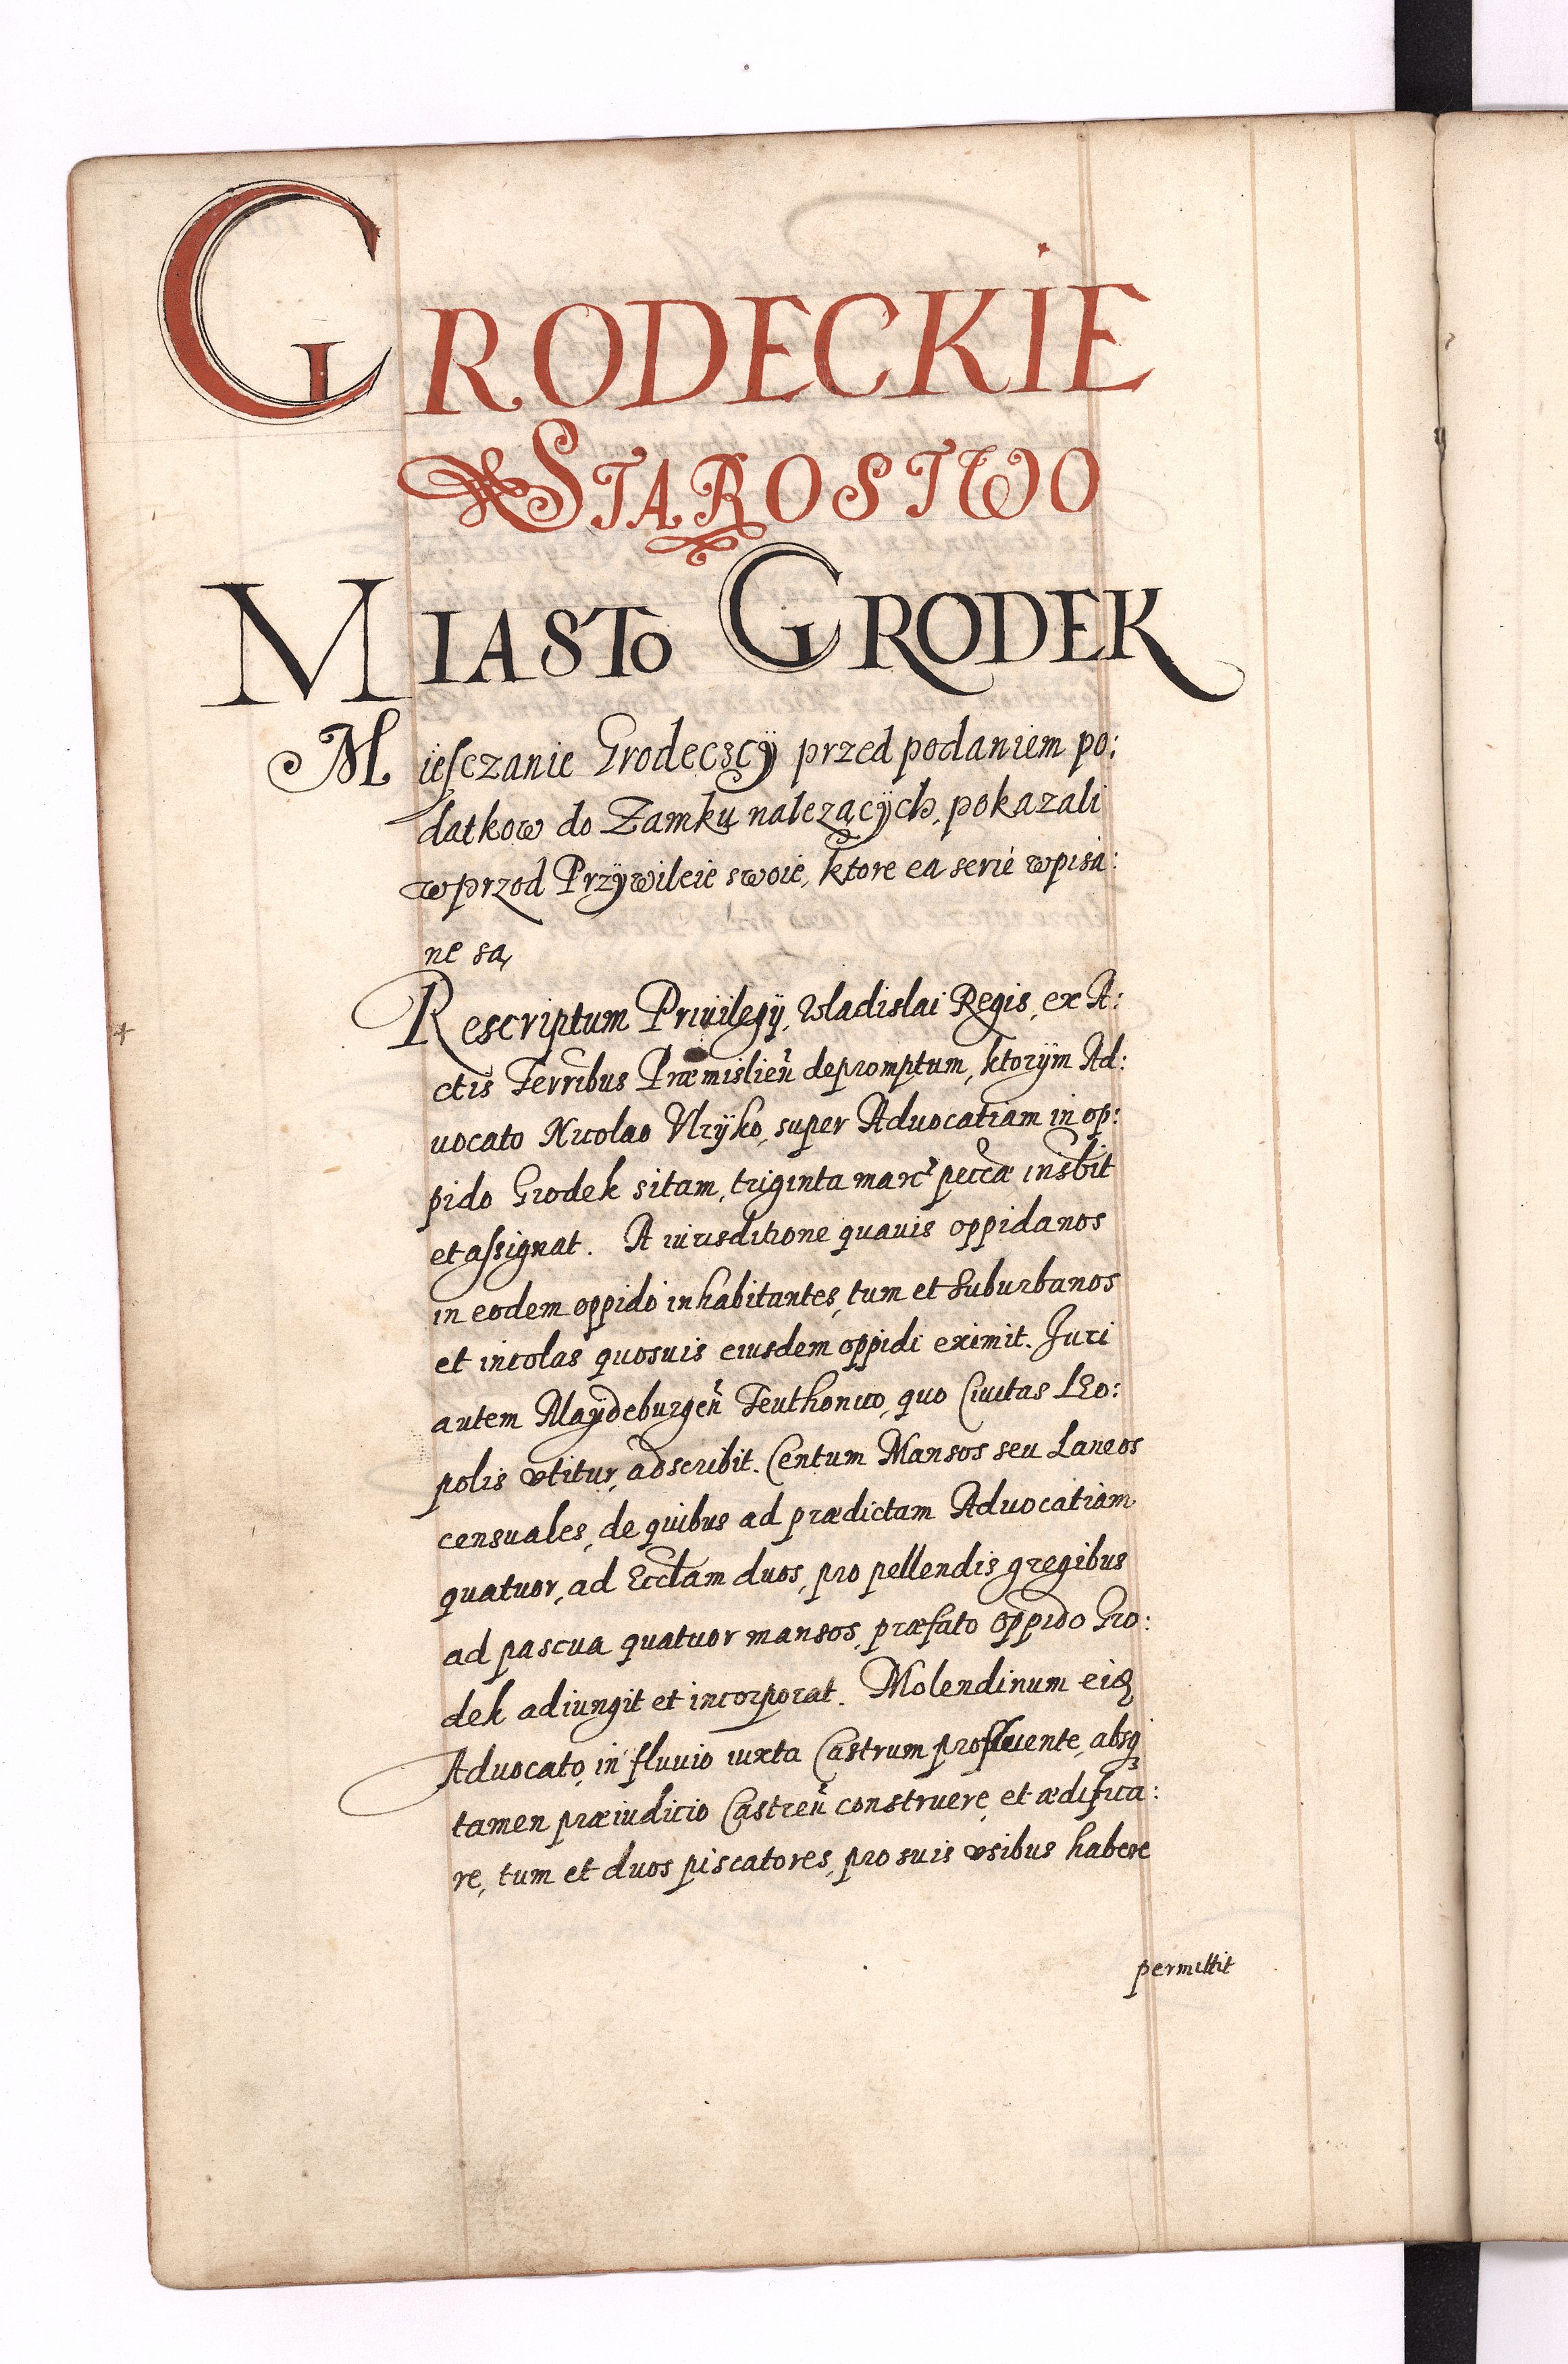 GRODECKIE
STAROSTWO
MIASTO GRODEK
Miesczanie Grodeczcÿ przed podaniem po:
datkow do Zamku należącÿch, pokazali
wprzod Przÿwileie swoie, ktore ea serié wpisa:
ne są,
Rescriptum Priuilegÿ, Vladislai Regis, ex A:
ctis Terribus Præmislien̄ depromptum, ktorÿm Ad:
uocato Nicolao Vlrÿko, super Aduocatiam in op:
pido Grodek sitam, triginta marc peccæ insbit
et assignat. A iurisditione quauis oppidanos
in eodem oppido inhabitantes, tum et suburbanos
et incolas quosuis eiusdem oppidi eximit. Juri
autem Maÿdeburgen̄ Teuthonico, quo Ciuitas LEo:
polis vtitur, adscribit. Centum Mansos seu Laneos
censuales, de quibus ad prædictam Aduocatiam
quatuor, ad Eccl̄am duos, pro pellendis gregibus
ad pascua quatuor mansos, præfato oppido Gro:
dek adiungit et incorporat. Molendinum eiꝫ
Aduocato, in fluuio iuxta Castrum profluente, absqꝫ
tamen præiudicio Castren̄ construere, et ædifica:
re, tum et duos piscatores, pro suis vsibus habere
permittit